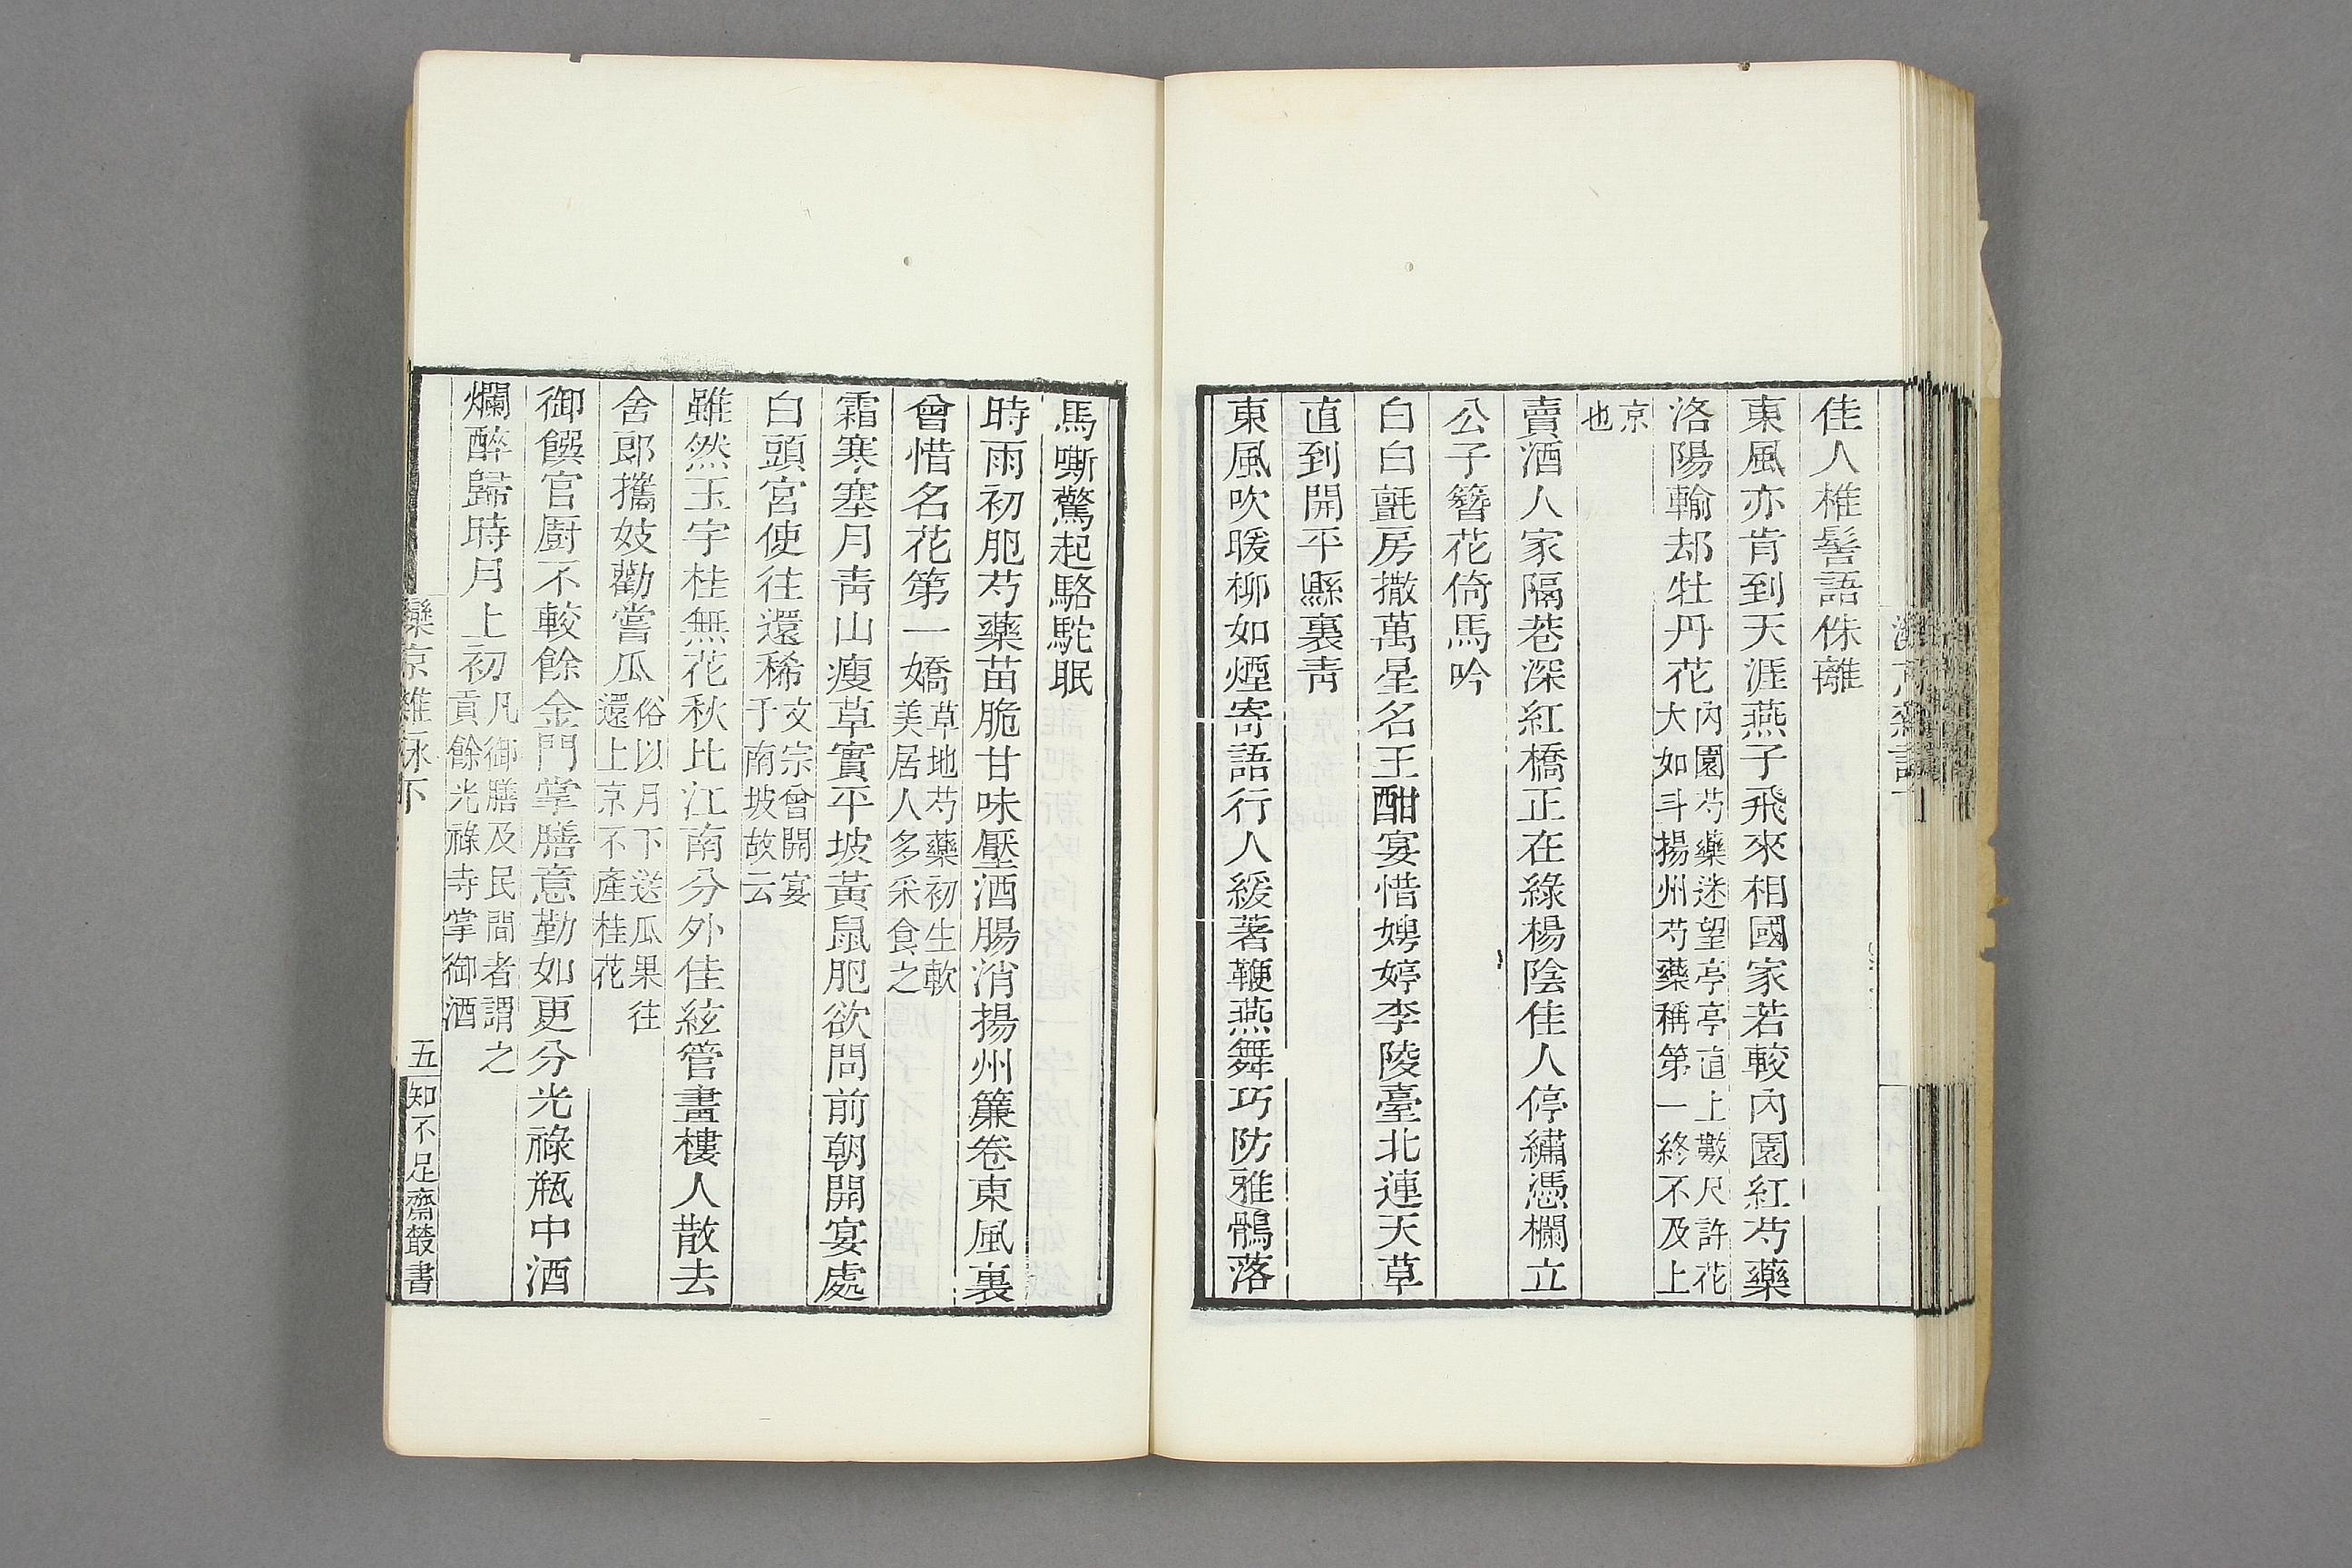 佳人椎髻語侏離
東風亦肯到天涯燕子飛來相國家若較內園紅芍藥
洛陽輸却牡丹花內園芍藥迷望亭亭直上數尺許花
大如斗揚州芍藥稱第一終不及上
京
也
賣酒人家隔巷深紅橋正在綠楊陰佳人停繡憑欄立
公子簪花倚馬吟
白白氈房撒萬星名王酣宴惜娉婷李陵臺北連天草
直到開平縣裏靑
東風吹暖柳如煙寄語行人緩著鞭燕舞巧防雅鶻落
馬嘶驚起駱駝眠
時雨初肥芍藥苗脆甘味壓酒腸消揚州簾卷東風裏
曾惜名花第一嬌草地芍藥初生軟
美居人多采食之
霜寒塞月靑山瘦草實平坡黃鼠肥欲問前朝開宴處
白頭宮使往還稀文宗曾開宴
于南坡故云
雖然玉宇桂無花秋比江南分外佳絃管畫樓人散去
舍郎攜妓勸嘗瓜俗以月下送瓜果往
還上京不產桂花
御饌官廚不較餘金門掌膳意勤如更分光祿瓶中酒
爛醉歸時月上初凡御膳及民間者謂之
貢餘光祿寺掌御酒
灤京雜詠下
五
知不足齋叢書